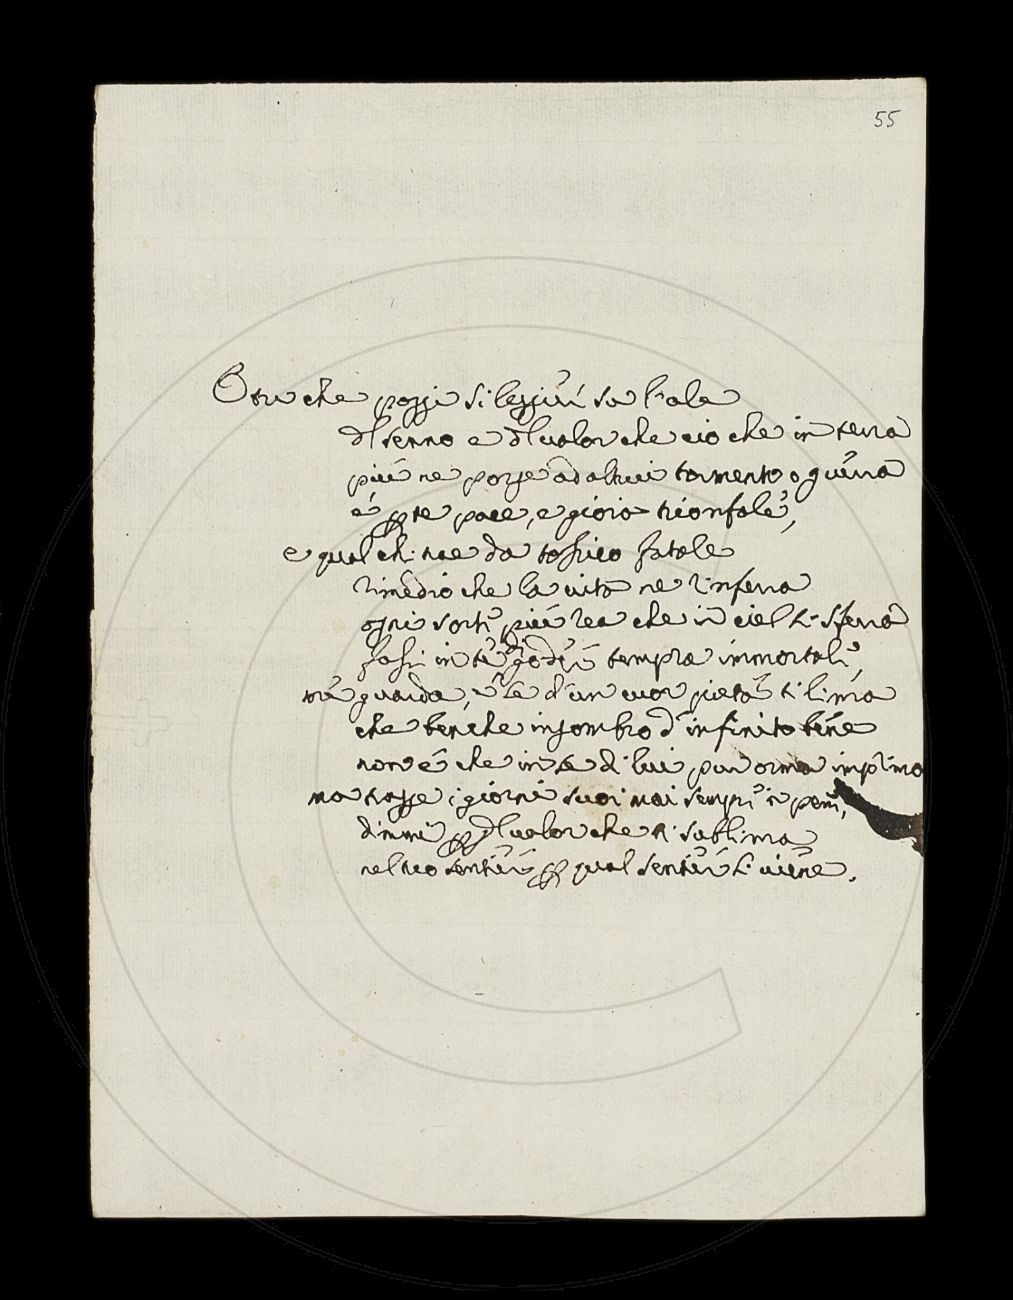 55
O tu che poggi si leggier su l'ale
del senno e del valor che cio che in terra
più ne porge ad altrui tormento o guerra
è per te pace, e gioia trionfale,
e qual chi trae da tossico fatale
rimedio che la vita ne rinferra
ogni sorte più rea che in ciel ti sferra
fassi in te gioie tempra immortale,
me guarda, e se d'un cuor pietà ti lima
che benche ingombro d'infinito bene
non è che in se di lui pur orma imprima
ma tragge i giorni suoi mai sempre in pene,
dimmi per del valor che ti sublima
nel tuo sentier per qual sentier ti viene.